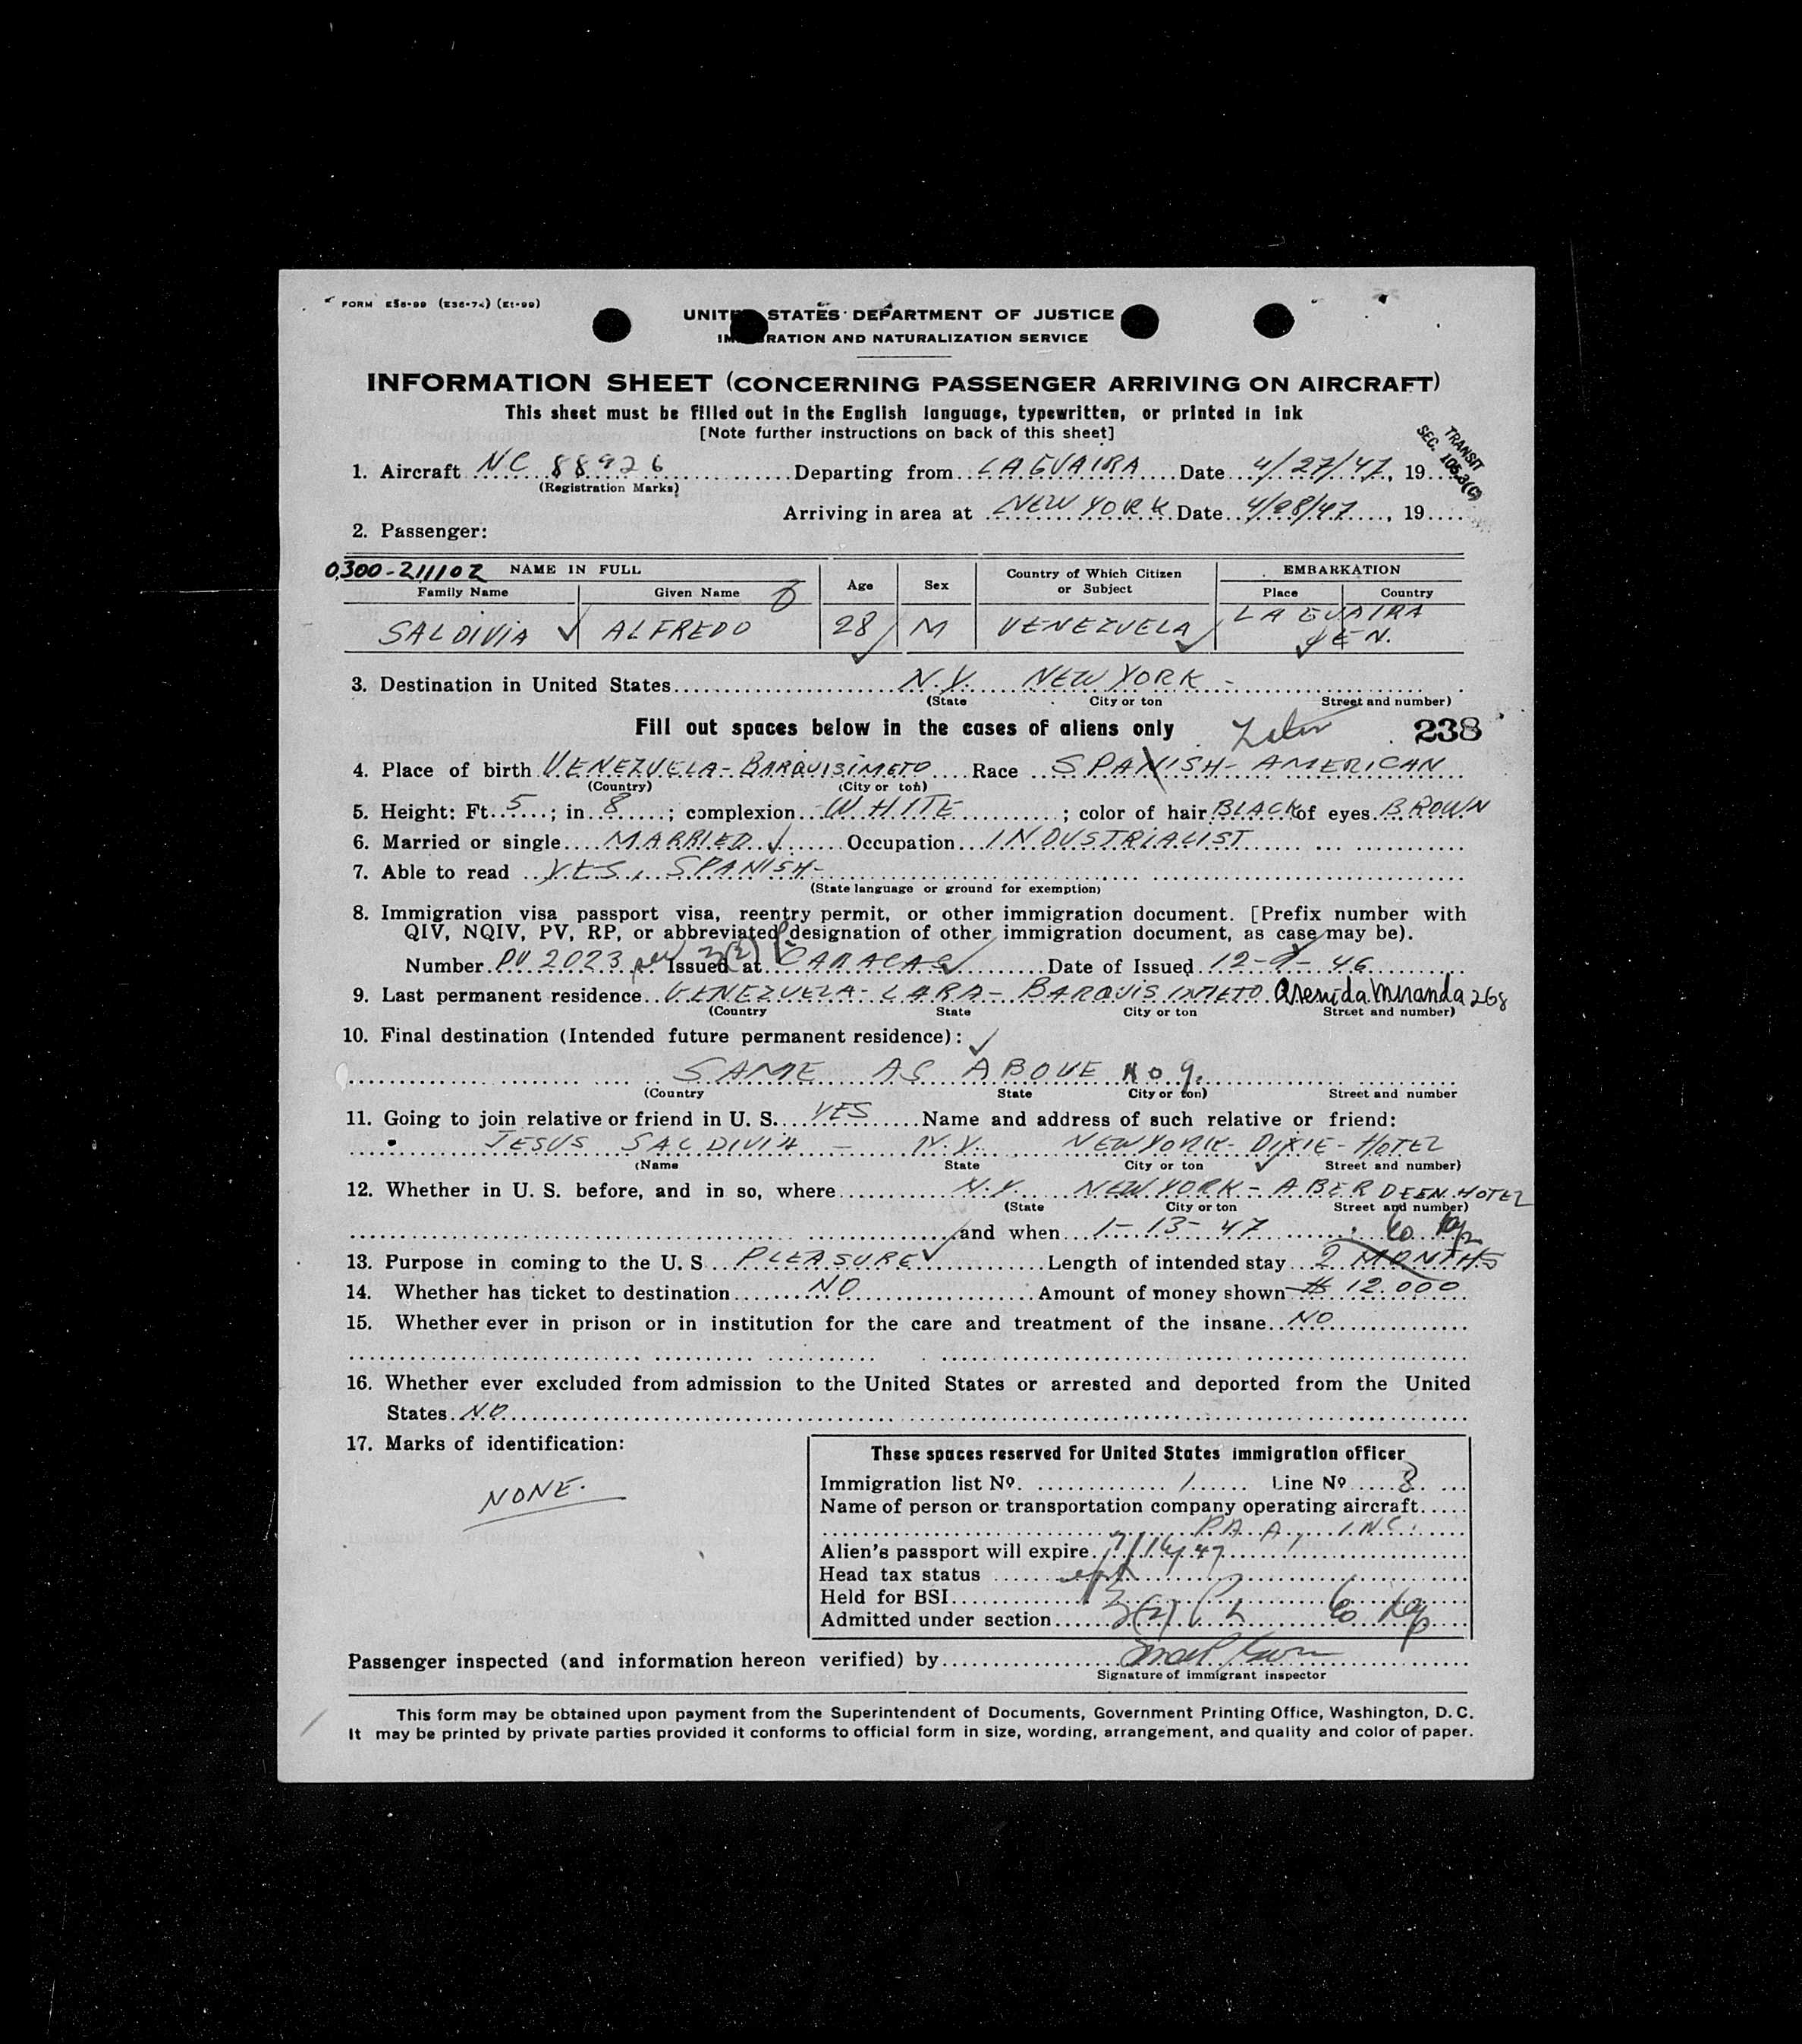 FORM E56-99 (E36-74) (E1-99)
UNIT STATES DEPARTMENT OF JUSTICE
IM RATION AND NATURALIZATION SERVICE
INFORMATION SHEET (CONCERNING PASSENGER ARRIVING ON AIRCRAFT)
This sheet must be filled out in the English language, typewritten, or printed in ink
[Note further instructions on back of this sheet]
TRANSIT
SEC. 105.3(C)
1. Aircraft NC 88926 Departing from LAGUAIRA Date 4/27/47, 19
(Registration Marks)
Arriving in area at NEW YORK Date 4/28/47, 19
2. Passenger:
0300-211102 NAME IN FULL Age Sex Country of Which Citizen or Subject EMBARKATION
Family Name Given Name Place Country
SALDIVIA ALFREDO 28 M VENEZUELA LA GUAIRA
VEN.
3. Destination in United States N.Y. NEW YORK -
(State City or ton Street and number)
Fill out spaces below in the cases of aliens only 238
4. Place of birth VENEZUELA - BARQUISIMETO Race SPANISH - AMERICAN
(Country) (City or ton)
5. Height: Ft. 5; in 8; complexion WHITE; color of hair BLACK of eyes BROWN
6. Married or single MARRIED Occupation INDUSTRIALIST
7. Able to read YES, SPANISH -
(State language or ground for exemption)
8. Immigration visa passport visa, reentry permit, or other immigration document. [Prefix number with
QIV, NQIV, PV, RP, or abbreviated designation of other immigration document, as case may be).
Number PV 2023 3(2) Issued at CARACAS Date of Issued 12-9-46
9. Last permanent residence VENEZUELA - LARA - BARQUISIMETO Avenida Miranda 268
(Country State City or ton Street and number)
10. Final destination (Intended future permanent residence):
SAME AS ABOVE No 9.
(Country State City or ton) Street and number
11. Going to join relative or friend in U. S. YES Name and address of such relative or friend:
JESUS SALDIVIA - N.Y. NEW YORK - DIXIE - HOTEL
(Name State City or ton Street and number)
12. Whether in U. S. before, and in so, where N.Y. NEW YORK - ABERDEEN HOTEL
(State City or ton Street and number)
and when 1-13-47
13. Purpose in coming to the U. S PLEASURE Length of intended stay 2 MONTHS
14. Whether has ticket to destination NO Amount of money shown $ 12.000
15. Whether ever in prison or in institution for the care and treatment of the insane NO
16. Whether ever excluded from admission to the United States or arrested and deported from the United
States. NO
17. Marks of identification:
NONE.
These spaces reserved for United States immigration officer
Immigration list Nº. 1 Line Nº 3
Name of person or transportation company operating aircraft
P.A.A., INC.
Alien's passport will expire 7/16/47
Head tax status
Held for BSI
Admitted under section 3(2)
Passenger inspected (and information hereon verified) by
Signature of immigrant inspector
This form may be obtained upon payment from the Superintendent of Documents, Government Printing Office, Washington, D. C.
It may be printed by private parties provided it conforms to official form in size, wording, arrangement, and quality and color of paper.